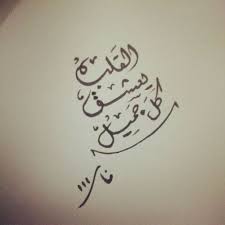 القلب
يعشق
كل جميل